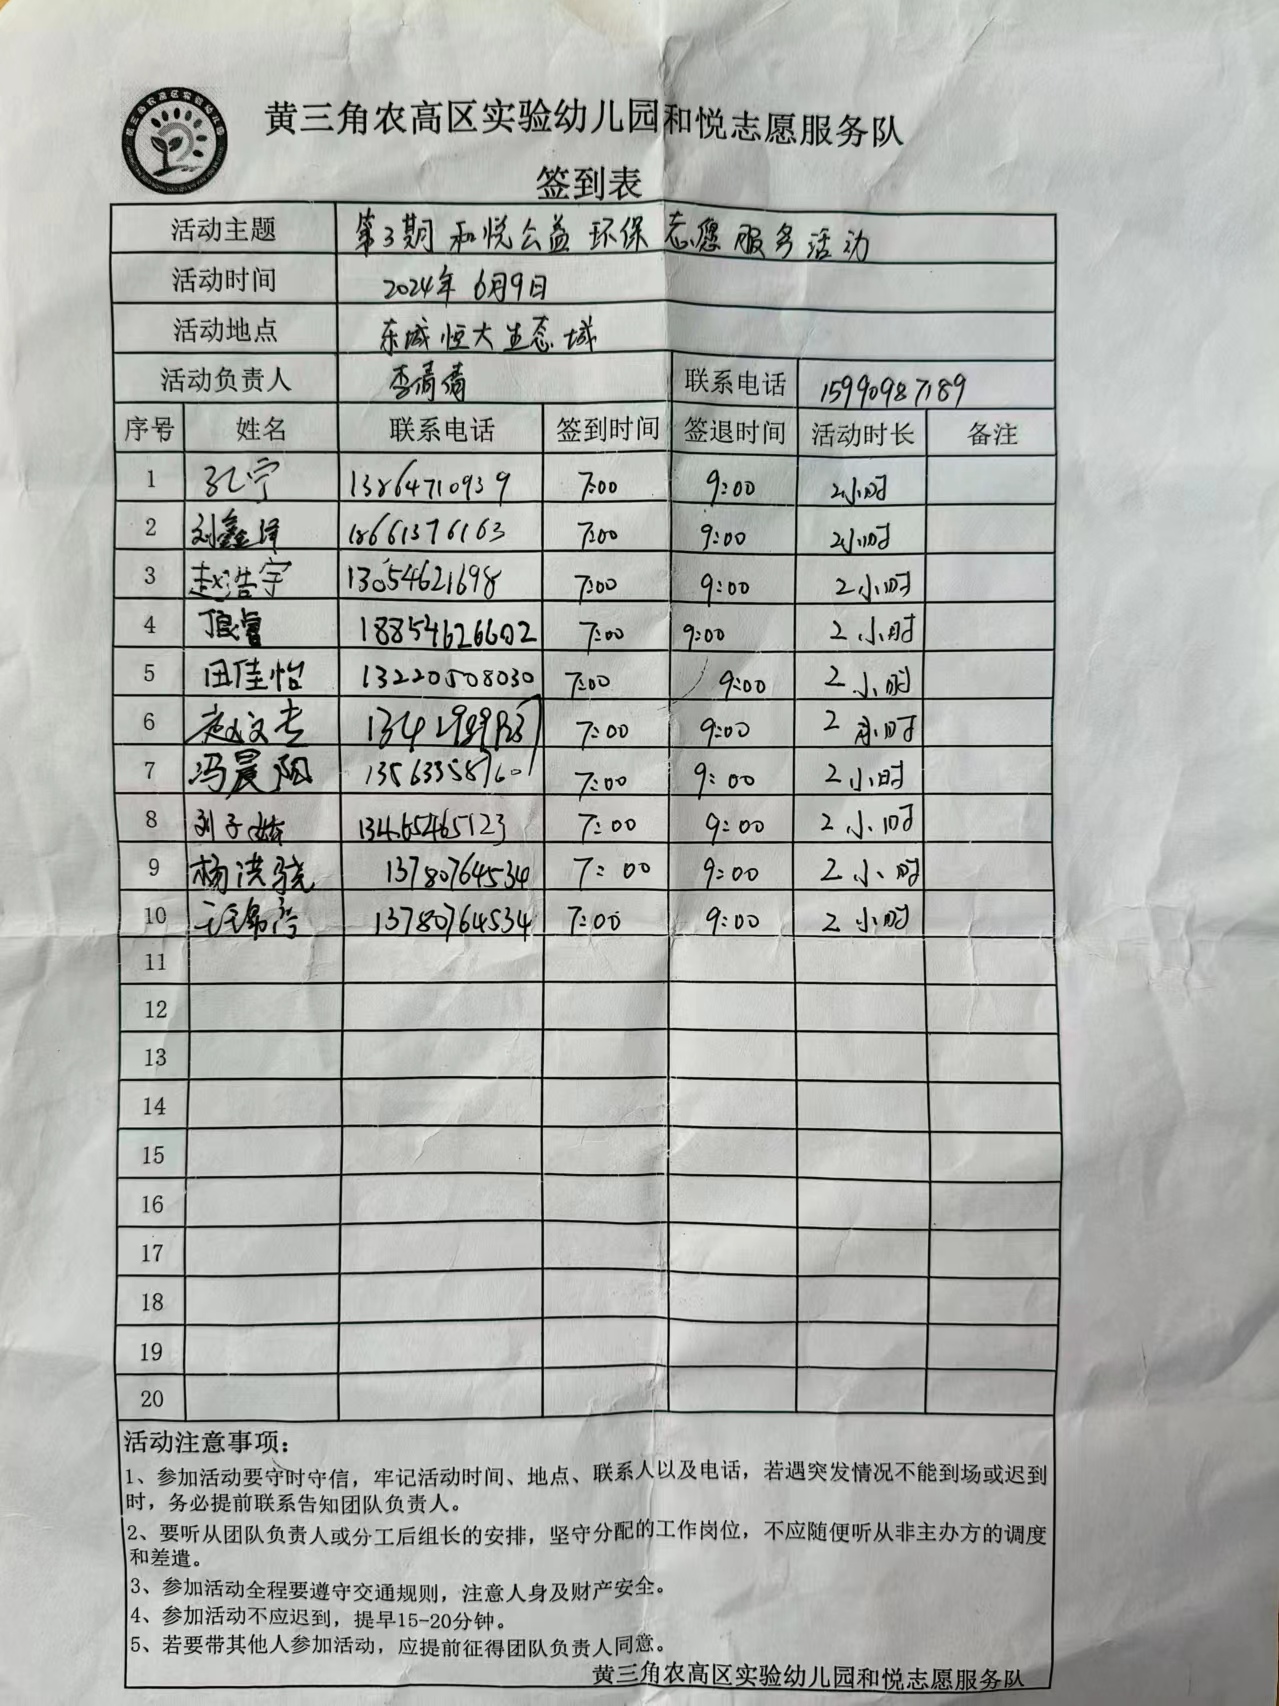 黄三角农高区实验幼儿园和悦志愿服务队
签到表
活动主题 第3期和悦公益环保志愿服务活动
活动时间 2024年6月9日
活动地点 东城恒大生态城
活动负责人 李倩倩 联系电话 15990987189
序号 姓名 联系电话 签到时间 签退时间 活动时长 备注
1 孔宁 13864710939 7:00 9:00 2小时
2 刘鑫泽 18661376163 7:00 9:00 2小时
3 赵浩宇 13054621698 7:00 9:00 2小时
4 18854626602 7:00 9:00 2小时
5 田佳怡 13220508030 7:00 9:00 2小时
6 7:00 9:00 2小时
7 冯晨阳 13563358760 7:00 9:00 2小时
8 刘子 13465465123 7:00 9:00 2小时
9 杨洪骁 13780764534 7:00 9:00 2小时
10 13780764534 7:00 9:00 2小时
11
12
13
14
15
16
17
18
19
20
活动注意事项：
1、参加活动要守时守信，牢记活动时间、地点、联系人以及电话，若遇突发情况不能到场或迟到
时，务必提前联系告知团队负责人。
2、要听从团队负责人或分工后组长的安排，坚守分配的工作岗位，不应随便听从非主办方的调度
和差遣。
3、参加活动全程要遵守交通规则，注意人身及财产安全。
4、参加活动不应迟到，提早15-20分钟。
5、若要带其他人参加活动，应提前征得团队负责人同意。
黄三角农高区实验幼儿园和悦志愿服务队